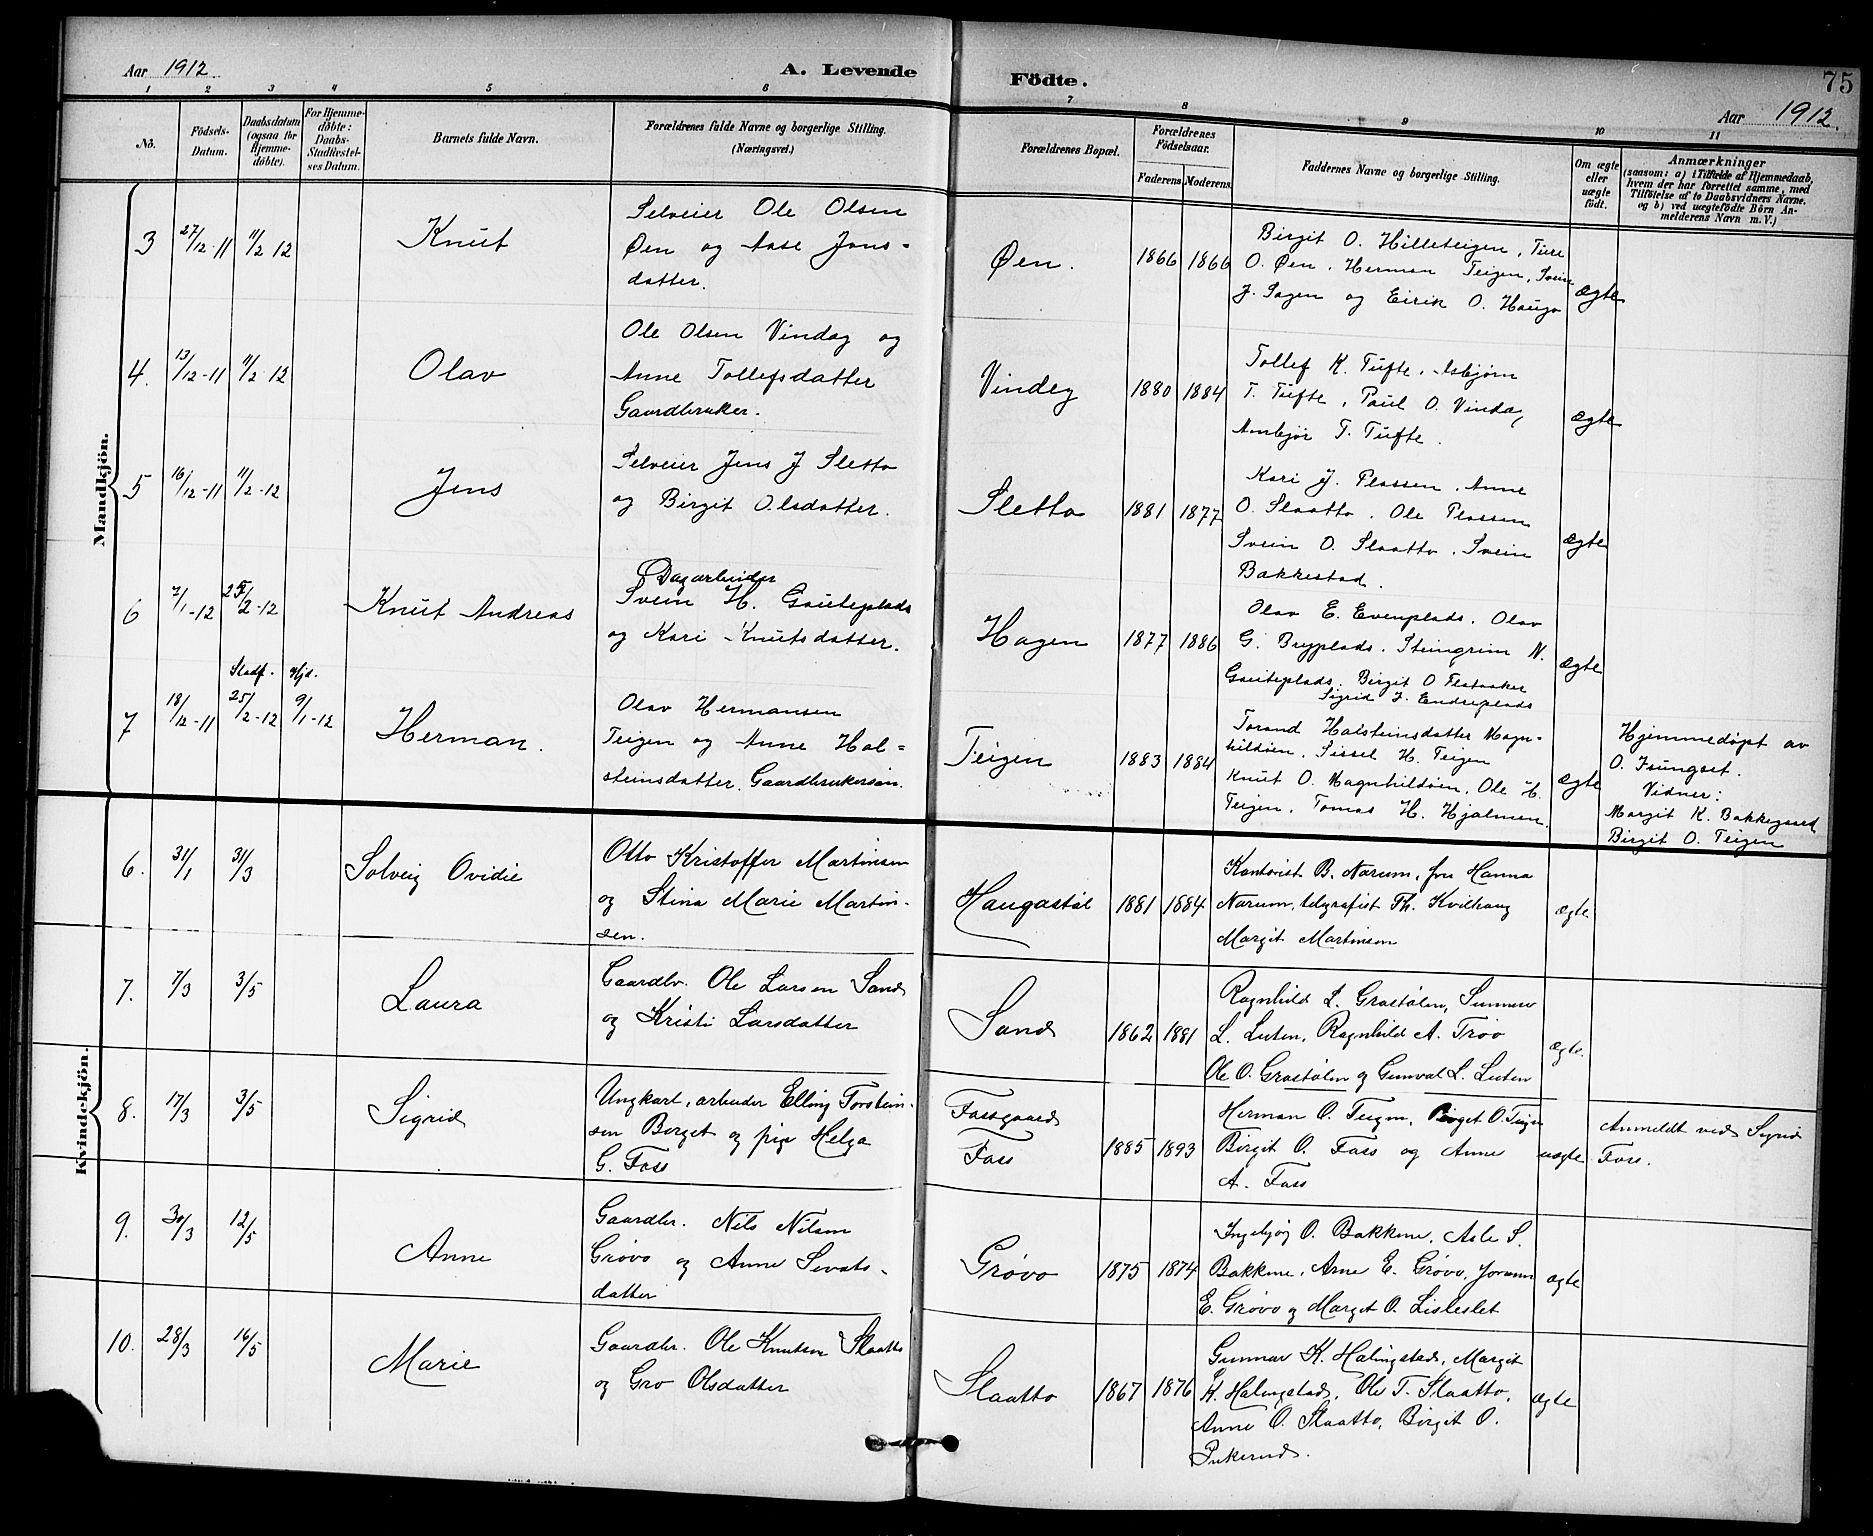 Aar 1912
A. Levende
Födte.
75
Aar 1912.
1 2 3 4 5 6 7 8 9 10 11
No.
Födsels-
Datum.
Daabsdatum
(ogsaa for
Hjemme-
döbte).
For Hjemme-
döbte:
Daabs-
Stadfæstel-
ses Datum.
Barnets fulde Navn.
Forældrenes fulde Navne og borgerlige Stilling.
(Næringsvei.)
Forældrenes Bopæl.
Forældrenes
Födselsaar.
Faderens Moderens
Faddernes Navne og borgerlige Stilling.
Om ægte
eller
uægte
födt.
Anmærkninger
(saasom: a) i Tilfælde af Hjemmedaab,
hvem der har forrettet samme, med
Tilföielse af to Daabsvidners Navne.
og b) ved uægtefödte Börn An-
melderens Navn m. V.)
Mandkjön.
3 27/12-11 11/2 12 Knut
Selveier Ole Olsen
Øen og Aase Jons-
datter.
Øen. 1866 1866
Birgit O. Hilleteigen, Ture
O. Øen, Herman Teigen, Svein
J. Hagen og Eirik O. Haugo
ægte
4. 13/12-11 11/2 12 Olav
Ole Olsen Vindeg og
Anne Tollefsdatter
Gaardbruker.
Vindeg 1880 1884
Tollef K. Tufte, Asbjørn
T. Tufte, Paul O. Vindeg,
Ambjør T. Tufte.
ægte
5 16/12-11 11/2-12 Jens
Selveier Jens J Sletto
og Birgit Olsdatter.
Sletto 1881 1877
Kari J. Plassen, Anne
O. Slaatto, Ole Plassen
Svein O. Slaatto, Svein
Bakkestad.
ægte
6 7/1-12 25/2-12 Knut Andreas
Dagarbeider
Svein H. Gauteplads
og Kari Knutsdatter.
Hagen 1877 1886
Olav E. Evenplads, Olav
G. Bryplads, Steingrim N.
Gauteplads, Birgit O Flataaker
Sigrid J. Endreplads
ægte
Stadf. Hjd.
7 18/12-11 25/2-12 9/1-12 Herman.
Olav Hermansen
Teigen og Anne Hal-
steinsdatter. Gaardbrukersøn.
Teigen 1883 1884
Torand Halsteinsdatter Magn-
hildøin, Sissel H. Teigen
Knut O. Magnhildøin, Ole H.
Teigen, Tomas H. Hjalmen.
ægte
Hjemmedøpt av
O. Isungset.
Vidner:
Margit K. Bakkegaard
Birgit O. Teigen
Kvindekjön.
6. 31/1 31/3 Solveig Ovidie
Otto Kristoffer Martinsen
og Stina Marie Martin-
sen.
Haugastøl 1881 1884
Kontorist B. Narum, fru Hanna
Narum, telegrafist Th. Kvilhaug
Margit Martinsen
ægte
7. 7/3 3/5 Laura
Gaardbr. Ole Larsen Sand
og Kristi Larsdatter
Sand 1862 1881
Ragnhild L. Grastølen, Sunnev
L. Luten, Ragnhild A. Trøo
Ole O. Grastølen og Gunvald L. Luten
ægte.
8. 17/3 3/5 Sigrid
Ungkarl, arbeider Elling Torstein-
sen Berget og pige Helga
G. Foss
Fossgaard
Foss 1885 1893
Herman O. Teigen, Birget O. Teigen
Birgit O. Foss og Anne
A. Foss
uægte
Anmeldt ved Sigrid
Foss.
9. 30/3 12/5 Anne
Gaardbr. Nils Nilsen
Grøvo og Anne Sevats-
datter
Grøvo 1875 1874
Ingebjøg O. Bakkene, Asle S.
Bakkene, Arne E. Grøvo, Jorunn
E. Grøvo og Marget O. Lisleslet
ægte
10. 28/3 16/5 Marie
Gaardbr. Ole Knutsen Slaatto
og Gro Olsdatter
Slaatto 1867 1876
Gunnar K. Halingstad, Margit
K. Halingstad, Ole T. Slaatto,
Anne O. Slaatto, Birgit O.
Pukerud.
ægte